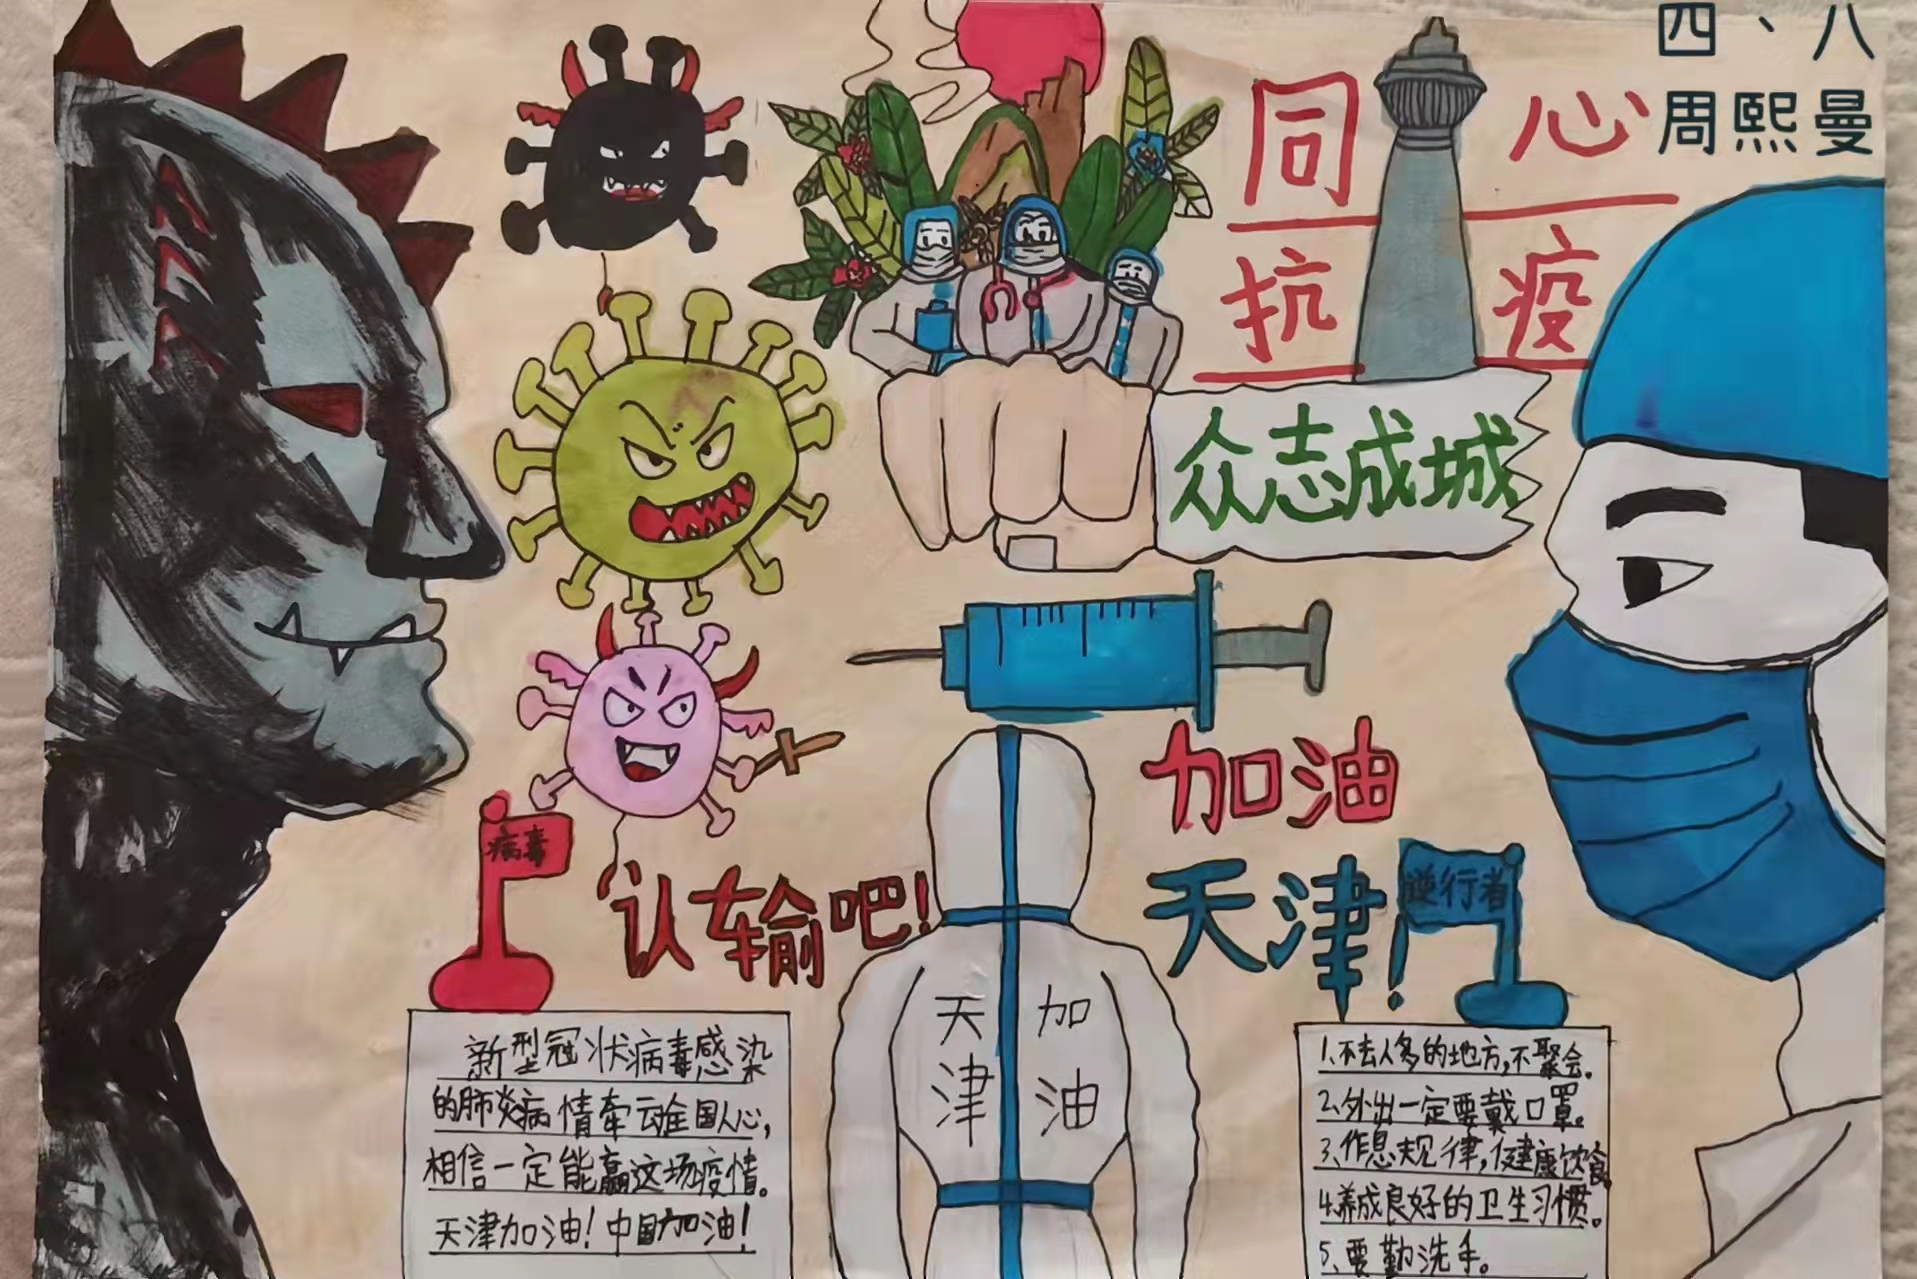 四、八
周熙曼
同心
抗疫
众志成城
加油
天津!
逆行者
病毒
认输吧!
天津
加油
新型冠状病毒感染
的肺炎病情牵动全国人心,
相信一定能赢这场疫情。
天津加油!中国加油!
1、不去人多的地方,不聚会。
2、外出一定要戴口罩。
3、作息规律,健康饮食
4、养成良好的卫生习惯。
5、要勤洗手。